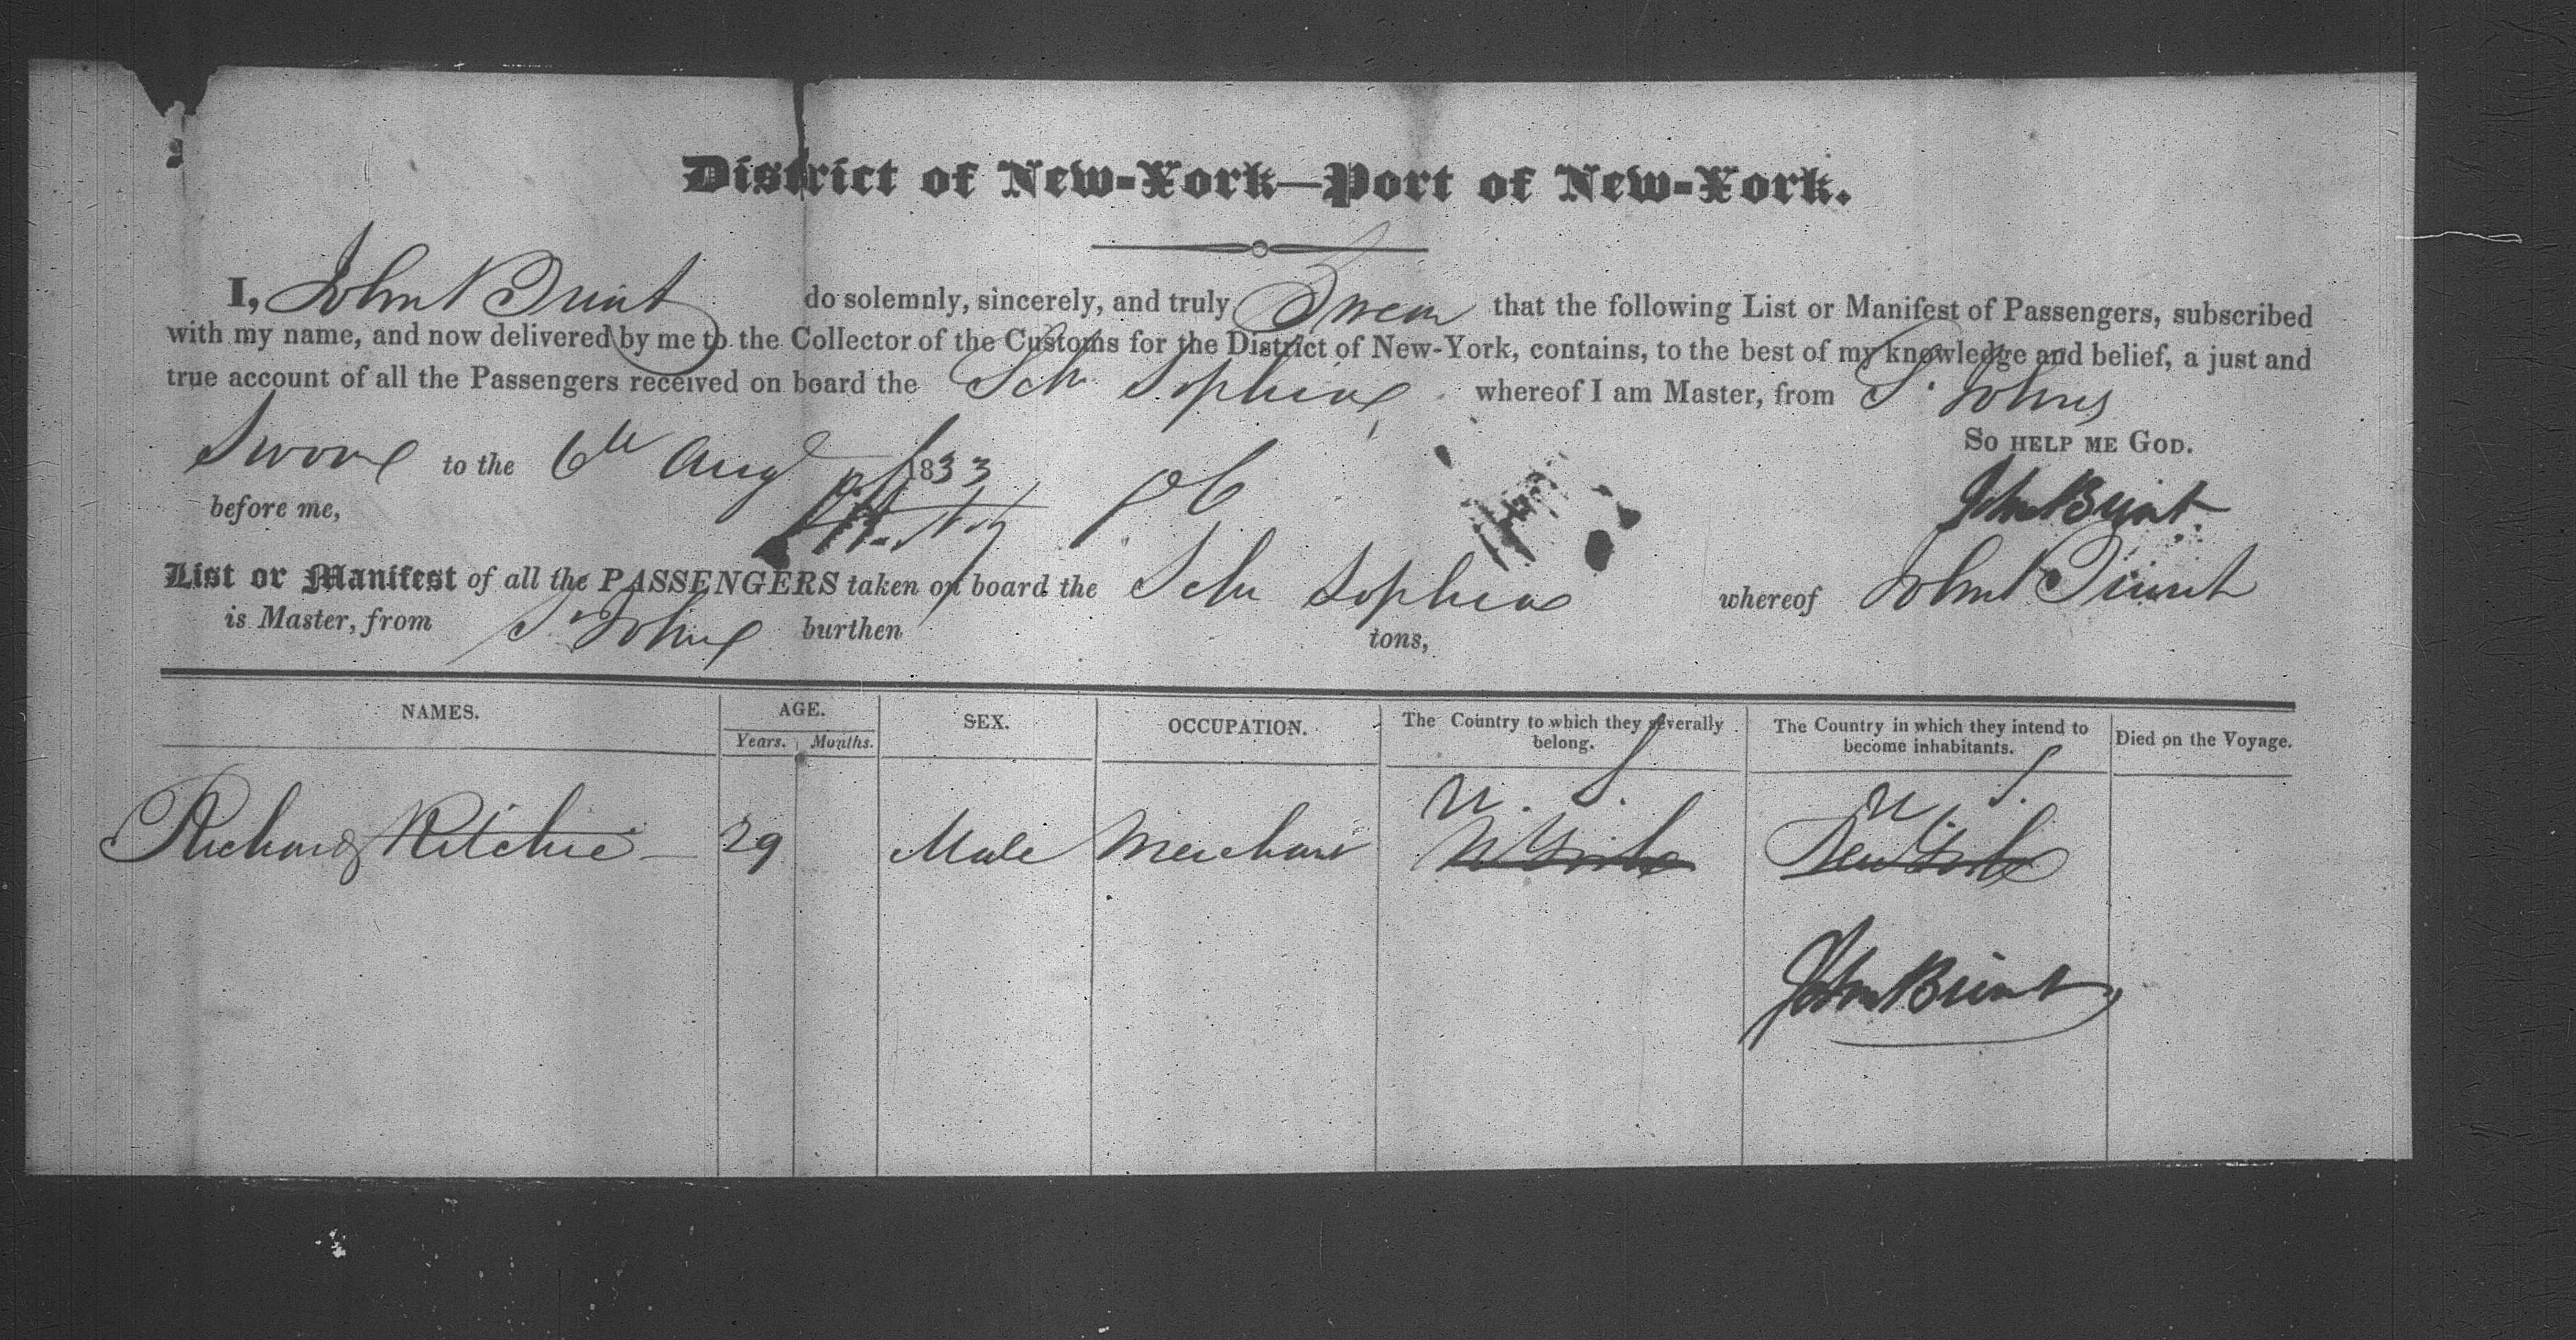 District of New-York—Port of New-York.
I, John Brint do solemnly, sincerely, and truly Swear that the following List or Manifest of Passengers, subscribed
with my name, and now delivered by me to the Collector of the Customs for the District of New-York, contains, to the best of my knowledge and belief, a just and
true account of all the Passengers received on board the Sch Sophia whereof I am Master, from St Johns
So help me God.
Sworn to the 6th Aug 1833
before me,
John Brint
List or Manifest of all the PASSENGERS taken on board the Schr Sophia whereof John Brint
is Master, from St Johns burthen tons,
NAMES. AGE. SEX. OCCUPATION. The Country to which they severally belong. The Country in which they intend to become inhabitants. Died on the Voyage.
Years. Months.
U. S. U. S.
Richard Ritchie 29 Male Merchant N York New York
John Brint